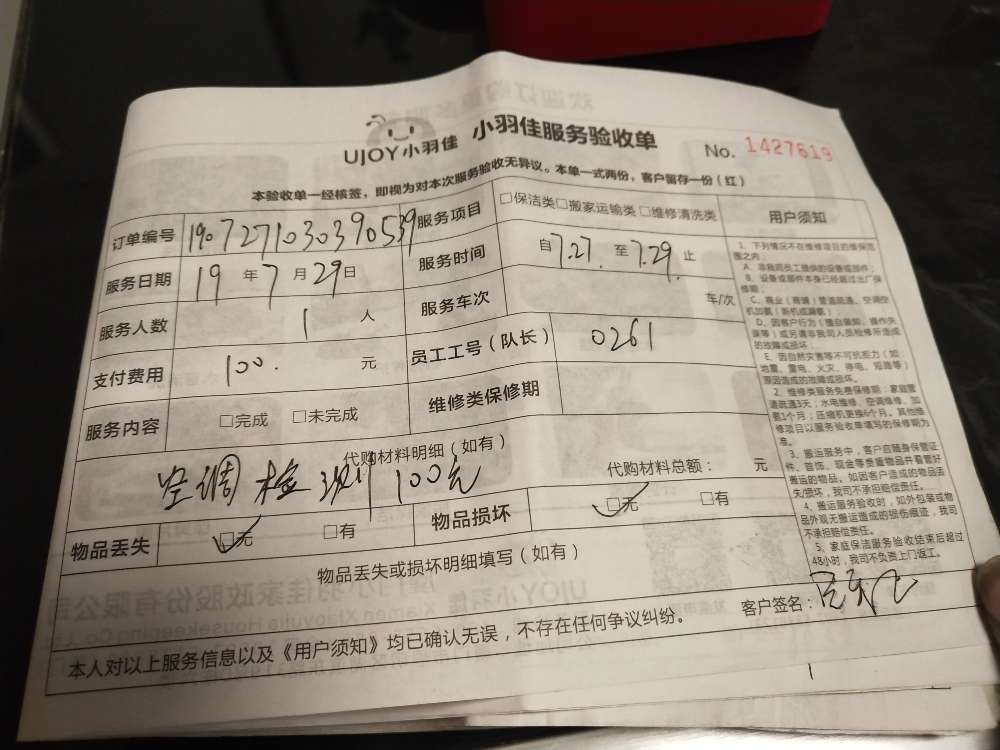 UJOY小羽佳 小羽佳服务验收单 No. 1427619
本验收单一经核签，即视为对本次服务验收无异议。本单一式两份，客户留存一份（红）
订单编号 190727103039053９ 服务项目 □保洁类□搬家运输类□维修清洗类 用户须知
服务日期 19 年 7 月 29 日 服务时间 自 7.27. 至 7.29. 止
服务人数 1 人 服务车次 车/次
支付费用 100. 元 员工工号（队长） 0261
服务内容 □完成 □未完成 维修类保修期
代购材料明细（如有）
空调检测 100元 代购材料总额： 元
物品丢失 ☑无 □有 物品损坏 ☑无 □有
物品丢失或损坏明细填写（如有）
1、下列情况不在维修项目的维保范
围之内：
A、非我司员工提供的设备或部件；
B、设备或部件本身已经超过出厂保
修期；
C、商业（商铺）管道疏通、空调空
机加氨（新机或漏氨）；
D、因客户行为（擅自装卸、操作失
误等）或另请非我司人员检修所造成
的故障或损坏；
E、因自然灾害等不可抗拒力（如：
地震、雷电、火灾、停电、短路等）
原因造成的故障或损坏。
2、维修类服务免费保修期：家庭管
道疏通3天；水电维修、空调维修、加
氨1个月；压缩机更换6个月。其他维
修项目以服务验收单填写的保修期为
准。
3、搬运服务中，客户应随身保管证
件、首饰、现金等贵重物品并看管好
搬运的物品。如因客户造成的物品丢
失/损坏，我司不承担赔偿责任。
4、搬运服务验收时，如外包装或物
品外观无搬运造成的损伤痕迹，我司
不承担赔偿责任。
5、家庭保洁服务验收结束后超过
48小时，我司不负责上门返工。
本人对以上服务信息以及《用户须知》均已确认无误，不存在任何争议纠纷。 客户签名：